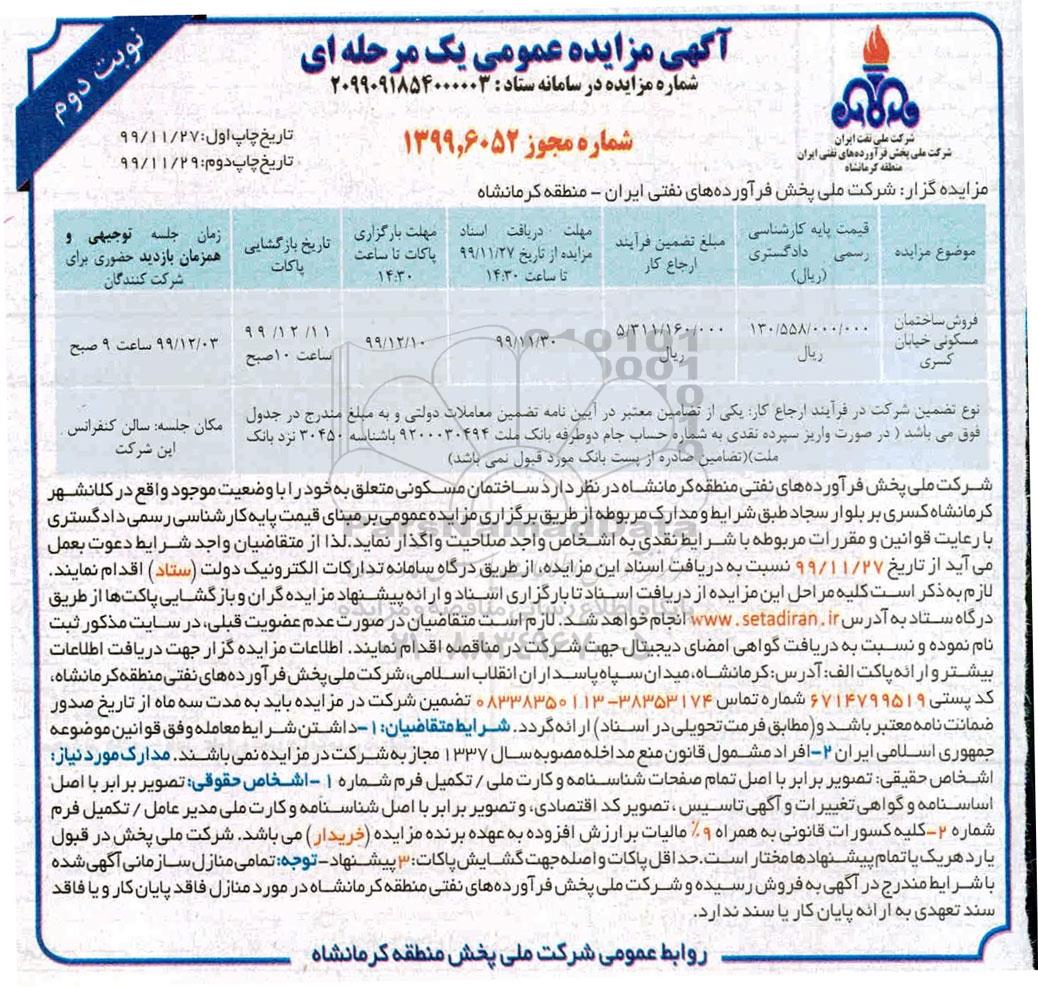 نوبت دوم
آگهی مزایده عمومی یک مرحله ای
شماره مزایده در سامانه ستاد: ۲۰۹۹۰۹۱۸۵۴۰۰۰۰۰۳
شماره مجوز ۱۳۹۹,۶۰۵۲
تاریخ چاپ اول: ۹۹/۱۱/۲۷
تاریخ چاپ دوم: ۹۹/۱۱/۲۹
شرکت ملی نفت ایران
شرکت ملی پخش فرآورده‌های نفتی ایران
منطقه کرمانشاه
مزایده گزار: شرکت ملی پخش فرآورده‌های نفتی ایران - منطقه کرمانشاه
موضوع مزایده
قیمت پایه کارشناسی
رسمی دادگستری
(ریال)
مبلغ تضمین فرآیند
ارجاع کار
مهلت دریافت اسناد
مزایده از تاریخ ۹۹/۱۱/۲۷
تا ساعت ۱۴:۳۰
مهلت بارگزاری
پاکات تا ساعت
۱۴:۳۰
تاریخ بازگشایی
پاکات
زمان جلسه توجیهی و
همزمان بازدید حضوری برای
شرکت کنندگان
فروش ساختمان
مسکونی خیابان
کسری
۱۳۰/۵۵۸/۰۰۰/۰۰۰
ریال
۵/۳۱۱/۱۶۰/۰۰۰
ریال
۹۹/۱۱/۳۰
۹۹/۱۲/۱۰
۹۹/۱۲/۱۱
ساعت ۱۰صبح
۹۹/۱۲/۰۳ ساعت ۹ صبح
نوع تضمین شرکت در فرآیند ارجاع کار: یکی از تضامین معتبر در آیین نامه تضمین معاملات دولتی و به مبلغ مندرج در جدول
فوق می باشد ( در صورت واریز سپرده نقدی به شماره حساب جام دوطرفه بانک ملت ۹۲۰۰۰۳۰۴۹۴ باشناسه ۳۰۴۵۰ نزد بانک
ملت)(تضامین صادره از پست بانک مورد قبول نمی باشد)
مکان جلسه: سالن کنفرانس
این شرکت
شرکت ملی پخش فرآورده‌های نفتی منطقه کرمانشاه در نظر دارد ساختمان مسکونی متعلق به خود را با وضعیت موجود واقع در کلانشهر
کرمانشاه کسری بر بلوار سجاد طبق شرایط و مدارک مربوطه از طریق برگزاری مزایده عمومی بر مبنای قیمت پایه کارشناسی رسمی دادگستری
با رعایت قوانین و مقررات مربوطه با شرایط نقدی به اشخاص واجد صلاحیت واگذار نماید. لذا از متقاضیان واجد شرایط دعوت بعمل
می آید از تاریخ ۹۹/۱۱/۲۷ نسبت به دریافت اسناد این مزایده، از طریق درگاه سامانه تدارکات الکترونیک دولت (ستاد) اقدام نمایند.
لازم به ذکر است کلیه مراحل این مزایده از دریافت اسناد تا بارگزاری اسناد و ارائه پیشنهاد مزایده گران و بازگشایی پاکت‌ها از طریق
درگاه ستاد به آدرس www.setadiran.ir انجام خواهد شد. لازم است متقاضیان در صورت عدم عضویت قبلی، در سایت مذکور ثبت
نام نموده و نسبت به دریافت گواهی امضای دیجیتال جهت شرکت در مناقصه اقدام نمایند. اطلاعات مزایده گزار جهت دریافت اطلاعات
بیشتر و ارائه پاکت الف: آدرس: کرمانشاه، میدان سپاه پاسداران انقلاب اسلامی، شرکت ملی پخش فرآورده‌های نفتی منطقه کرمانشاه،
کد پستی ۶۷۱۴۷۹۹۵۱۹ شماره تماس ۳۸۳۵۳۱۷۴-۰۸۳۳۸۳۵۰۱۱۳ تضمین شرکت در مزایده باید به مدت سه ماه از تاریخ صدور
ضمانت نامه معتبر باشد و(مطابق فرمت تحویلی در اسناد) ارائه گردد. شرایط متقاضیان: ۱-داشتن شرایط معامله وفق قوانین موضوعه
جمهوری اسلامی ایران ۲-افراد مشمول قانون منع مداخله مصوبه سال ۱۳۳۷ مجاز به شرکت در مزایده نمی باشند. مدارک مورد نیاز:
اشخاص حقیقی: تصویر برابر با اصل تمام صفحات شناسنامه و کارت ملی / تکمیل فرم شماره ۱ -اشخاص حقوقی: تصویر برابر با اصل
اساسنامه و گواهی تغییرات و آگهی تاسیس، تصویر کد اقتصادی، و تصویر برابر با اصل شناسنامه و کارت ملی مدیر عامل / تکمیل فرم
شماره ۲-کلیه کسورات قانونی به همراه ۹٪ مالیات بر ارزش افزوده به عهده برنده مزایده (خریدار) می باشد. شرکت ملی پخش در قبول
یا رد هریک یا تمام پیشنهادها مختار است. حداقل پاکات واصله جهت گشایش پاکات: ۳ پیشنهاد-توجه: تمامی منازل سازمانی آگهی شده
با شرایط مندرج در آگهی به فروش رسیده و شرکت ملی پخش فرآورده‌های نفتی منطقه کرمانشاه در مورد منازل فاقد پایان کار و یا فاقد
سند تعهدی به ارائه پایان کار یا سند ندارد.
روابط عمومی شرکت ملی پخش منطقه کرمانشاه
ParsNamadData
پایگاه اطلاع رسانی مناقصه و مزایده
۰۲۱-۸۸۳۴۹۶۷۰-۵